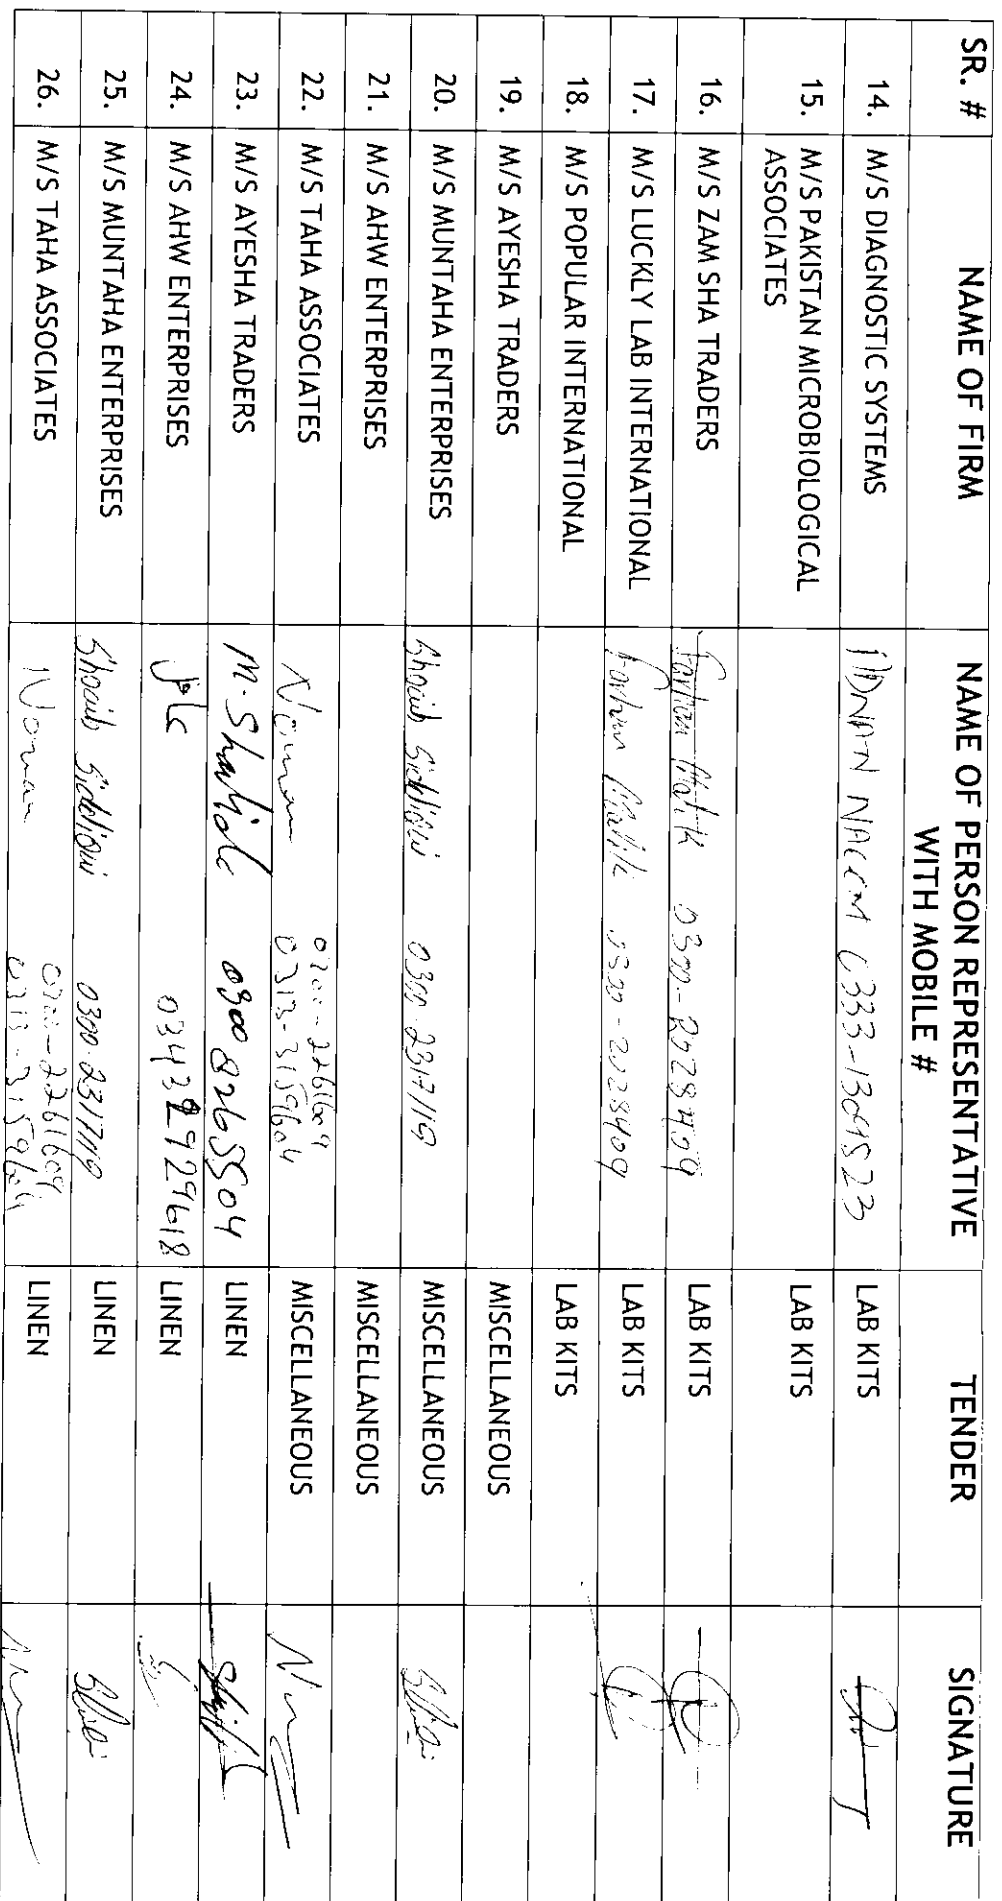 SR. # NAME OF FIRM NAME OF PERSON REPRESENTATIVE WITH MOBILE # TENDER SIGNATURE
14. M/S DIAGNOSTIC SYSTEMS ADNAN NAEEM LAB KITS
15. M/S PAKISTAN MICROBIOLOGICAL LAB KITS
ASSOCIATES
16. M/S ZAM SHA TRADERS Farhan Malik LAB KITS
17. M/S LUCKLY LAB INTERNATIONAL Farhan Malik LAB KITS
18. M/S POPULAR INTERNATIONAL LAB KITS
19. M/S AYESHA TRADERS MISCELLANEOUS
20. M/S MUNTAHA ENTERPRISES Shoaib Siddiqui MISCELLANEOUS
21. M/S AHW ENTERPRISES MISCELLANEOUS
22. M/S TAHA ASSOCIATES Noman 0313-3159604 MISCELLANEOUS
23. M/S AYESHA TRADERS M. Shahid 0300 8265504 LINEN
24. M/S AHW ENTERPRISES LINEN
25. M/S MUNTAHA ENTERPRISES Shoaib Siddiqui LINEN
26. M/S TAHA ASSOCIATES Noman 0313-3159604 LINEN